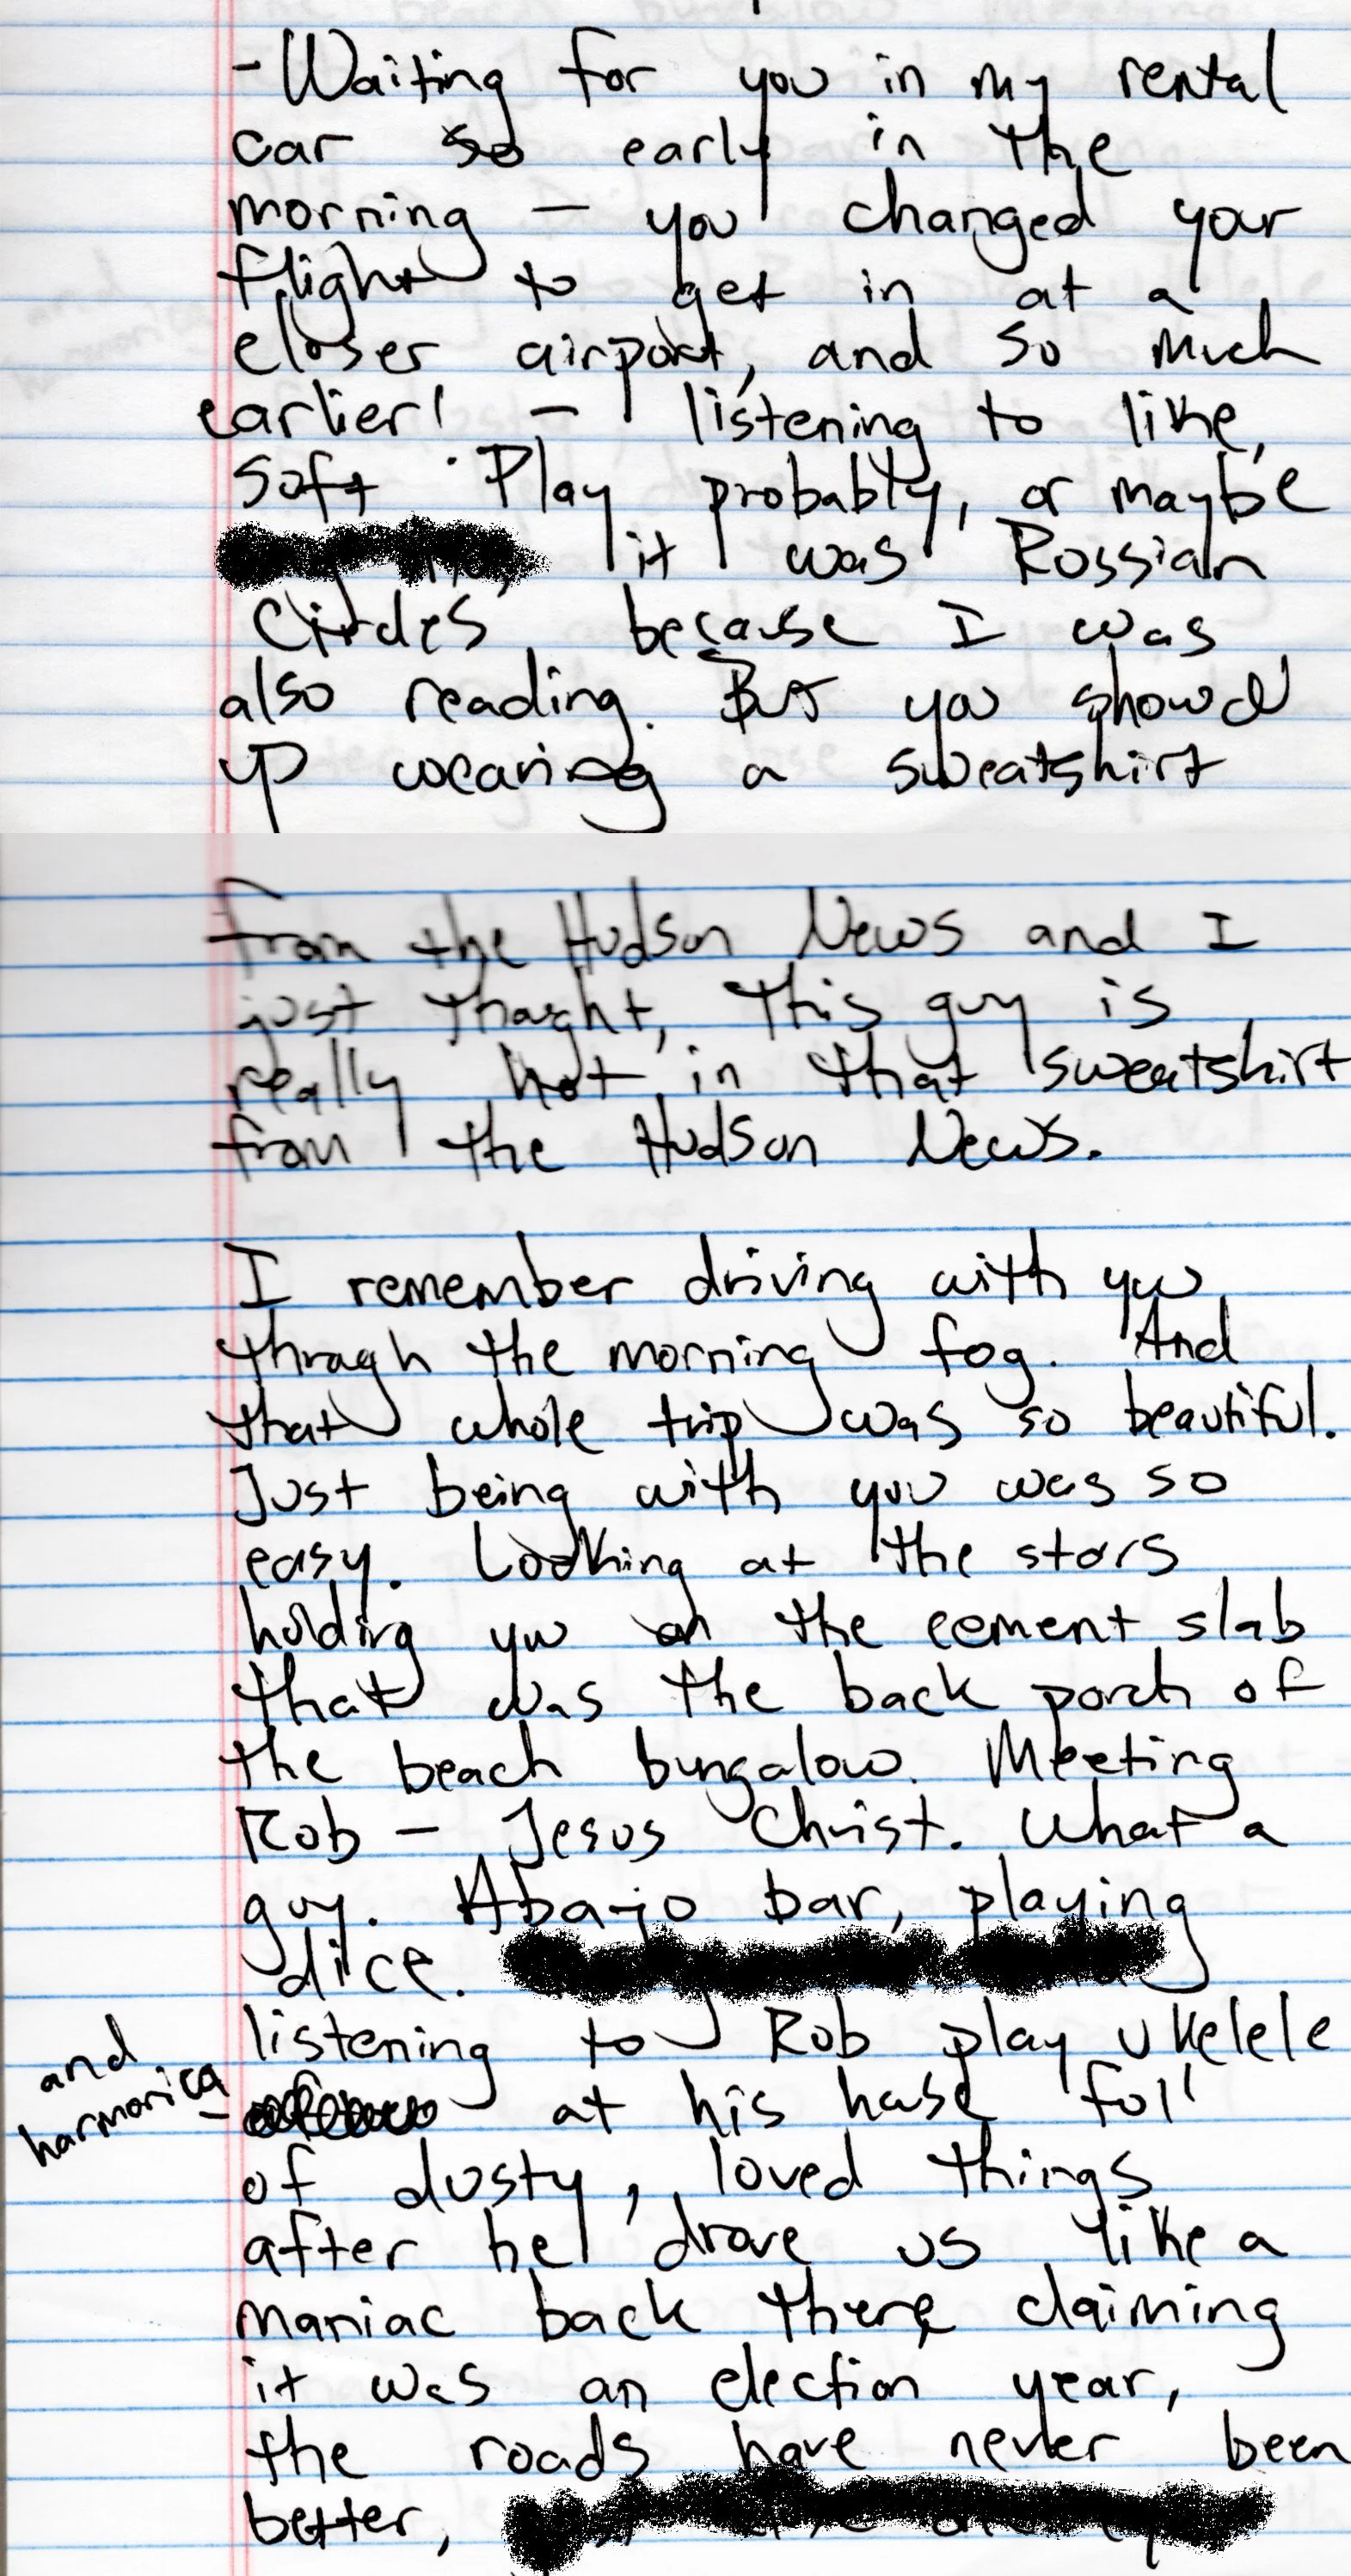 - Waiting for you in my rental
car so early in the
morning — you changed your
flight to get in at a
closer airport, and so much
earlier! — listening to like,
Soft Play probably, or maybe
it was Russian
Circles because I was
also reading. But you showed
up wearing a sweatshirt
from the Hudson News and I
just thought, this guy is
really hot in that sweatshirt
from the Hudson News.
I remember driving with you
through the morning fog. And
that whole trip was so beautiful.
Just being with you was so
easy. Looking at the stars
holding you on the cement slab
that was the back porch of
the beach bungalow. Meeting
Rob — Jesus Christ. What a
guy. Abajo bar, playing
dice.
listening to Rob play ukelele
and
harmonica
at his house full
of dusty, loved things
after he drove us like a
maniac back there claiming
it was an election year,
the roads have never been
better,